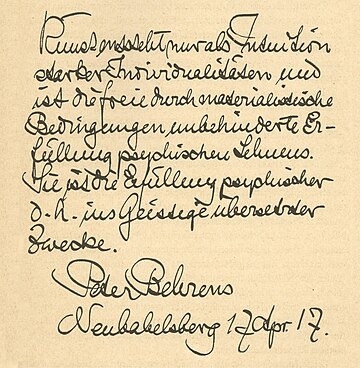 Kunst entsteht nur als Intuition
starker Individualitäten und
ist die freie durch materialistische
Bedingungen unbehinderte Er-
füllung psychischen Sehnens.
Sie ist die Erfüllung psychischer
d. h. ins Geistige übersetzter
Zwecke.
Peter Behrens
Neubabelsberg 17 Apr. 17.